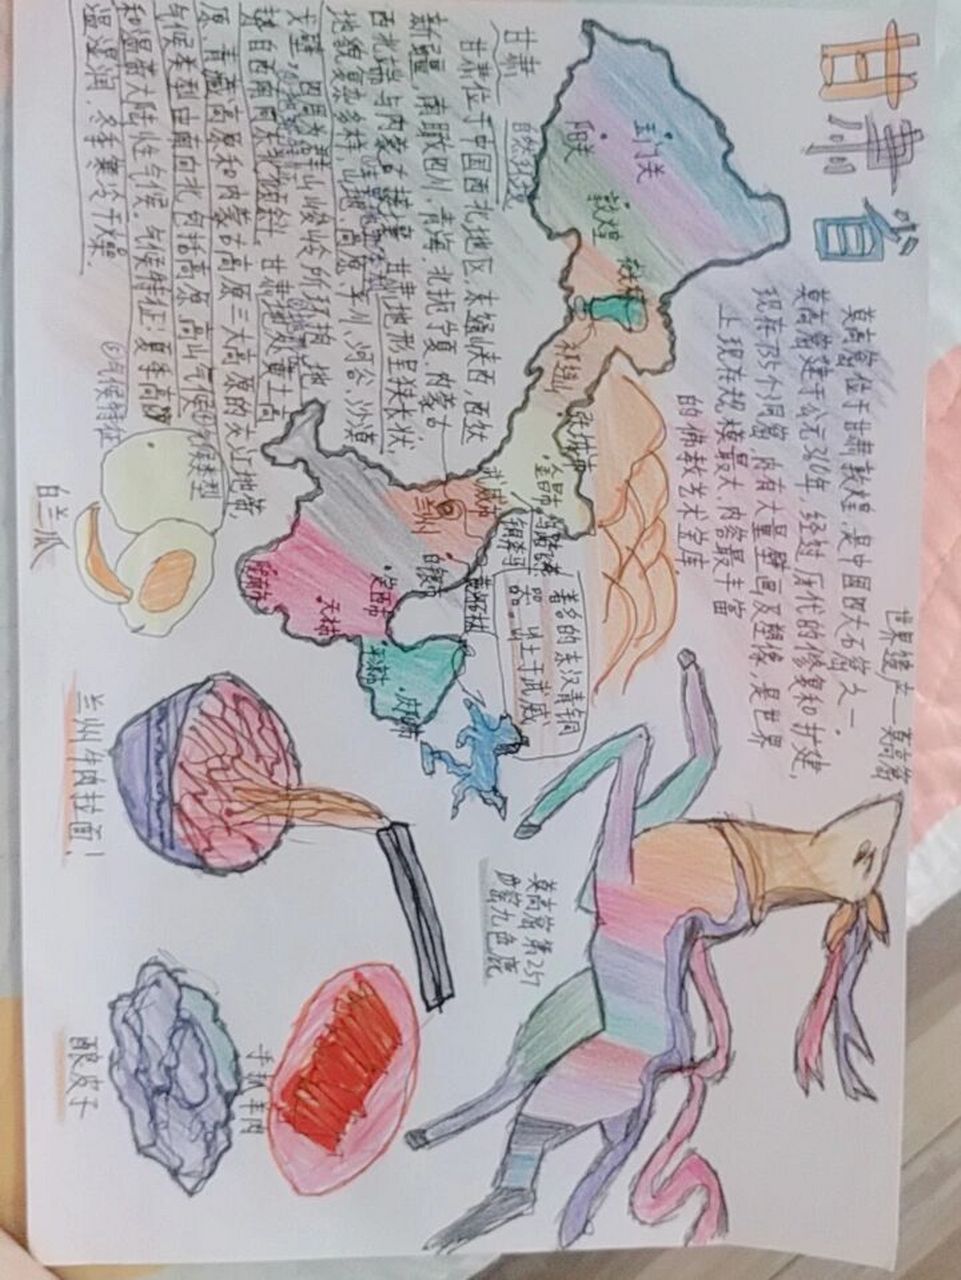 甘肃省
世界遗产—莫高窟
莫高窟位于甘肃敦煌,是中国四大石窟之一
莫高窟建于公元366年,经过历代的修复和扩建,
现在735个洞窟,内有大量壁画及塑像,是世界
上现在规模最大,内容最丰富
的佛教艺术宝库.
玉门关
阳关
敦煌
祁连山
张掖市
金昌市
武威市
兰州
白银市
定西市
天水市
陇南市
平凉市
庆阳市
马踏飞燕
铜奔马
著名的东汉青铜
器.出土于武威
甘肃
自然环境
甘肃位于中国西北地区,东通陕西,西伏
新疆,南瞰四川,青海,北扼宁夏,内蒙古
西北端与内蒙古接壤.甘肃地形呈狭长状,
地貌复杂多样,山地,高原,平川,河谷,沙漠
戈壁,四周为群山峻岭所环抱,地
势自西南向东北倾斜.甘肃地处黄土高
原,青藏高原和内蒙古高原三大高原的交汇地带,
气候类型由南向北包括高原高山气候
和温带大陆性气候.气候特征:夏季高温
湿润,冬季寒冷干燥.
气候类型
气候特征
白兰瓜
莫高窟第257
窟九色鹿
兰州牛肉拉面!
手抓羊肉
酿皮子